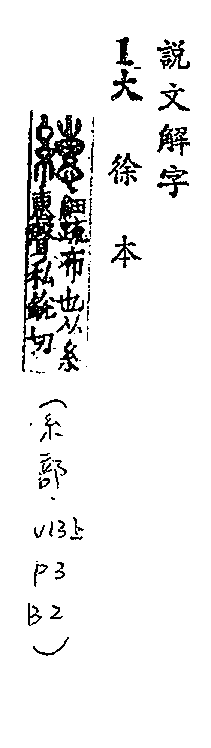 說文解字
1大徐本
繐細疏布也从糸
惠聲私銳切
(糸部.
V13上
P3
B2)